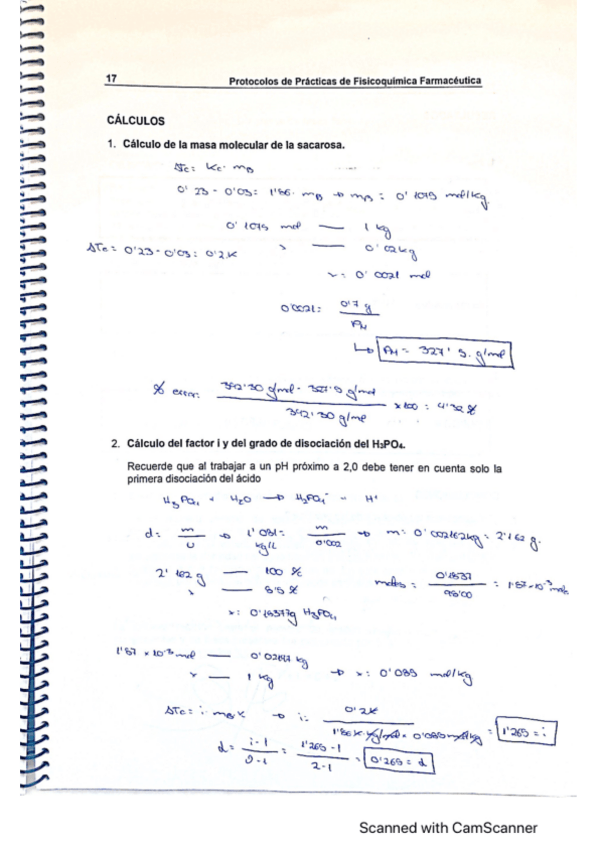 17 Protocolos de Prácticas de Fisicoquímica Farmacéutica
CÁLCULOS
1. Cálculo de la masa molecular de la sacarosa.
ΔTc = Kc · mB
0'23 - 0'03 = 1'86 · mB → mB = 0'1075 mol/kg
0'1075 mol — 1 kg
ΔTc = 0'23 - 0'03 = 0'2K
x — 0'02kg
x = 0'0021 mol
0'0021 = 0'7 g / PM
↳ PM = 327'5 g/mol
% error = 342'30 g/mol - 327'5 g/mol / 342'30 g/mol × 100 = 4'32 %
2. Cálculo del factor i y del grado de disociación del H₃PO₄.
Recuerde que al trabajar a un pH próximo a 2,0 debe tener en cuenta solo la
primera disociación del ácido
H₃PO₄ + H₂O → H₂PO₄⁻ + H⁺
d = m / v → 1'081 kg/L = m / 0'002 → m = 0'002162kg = 2'162 g.
2'162 g — 100 %
x — 8'5 %
x = 0'18377g H₃PO₄
moles = / 98'00 = 1'87·10⁻³ mols
1'87 × 10⁻³ mol — kg
x — 1 kg
→ x = 0'085 mol/kg
ΔTc = i · K → i = 0'2K / 1'86 K · kg/mol · mol/kg = 1'265 = i
d = i - 1 / 2 - 1 = 1'265 - 1 / 2 - 1 = 0'265 = d
Scanned with CamScanner